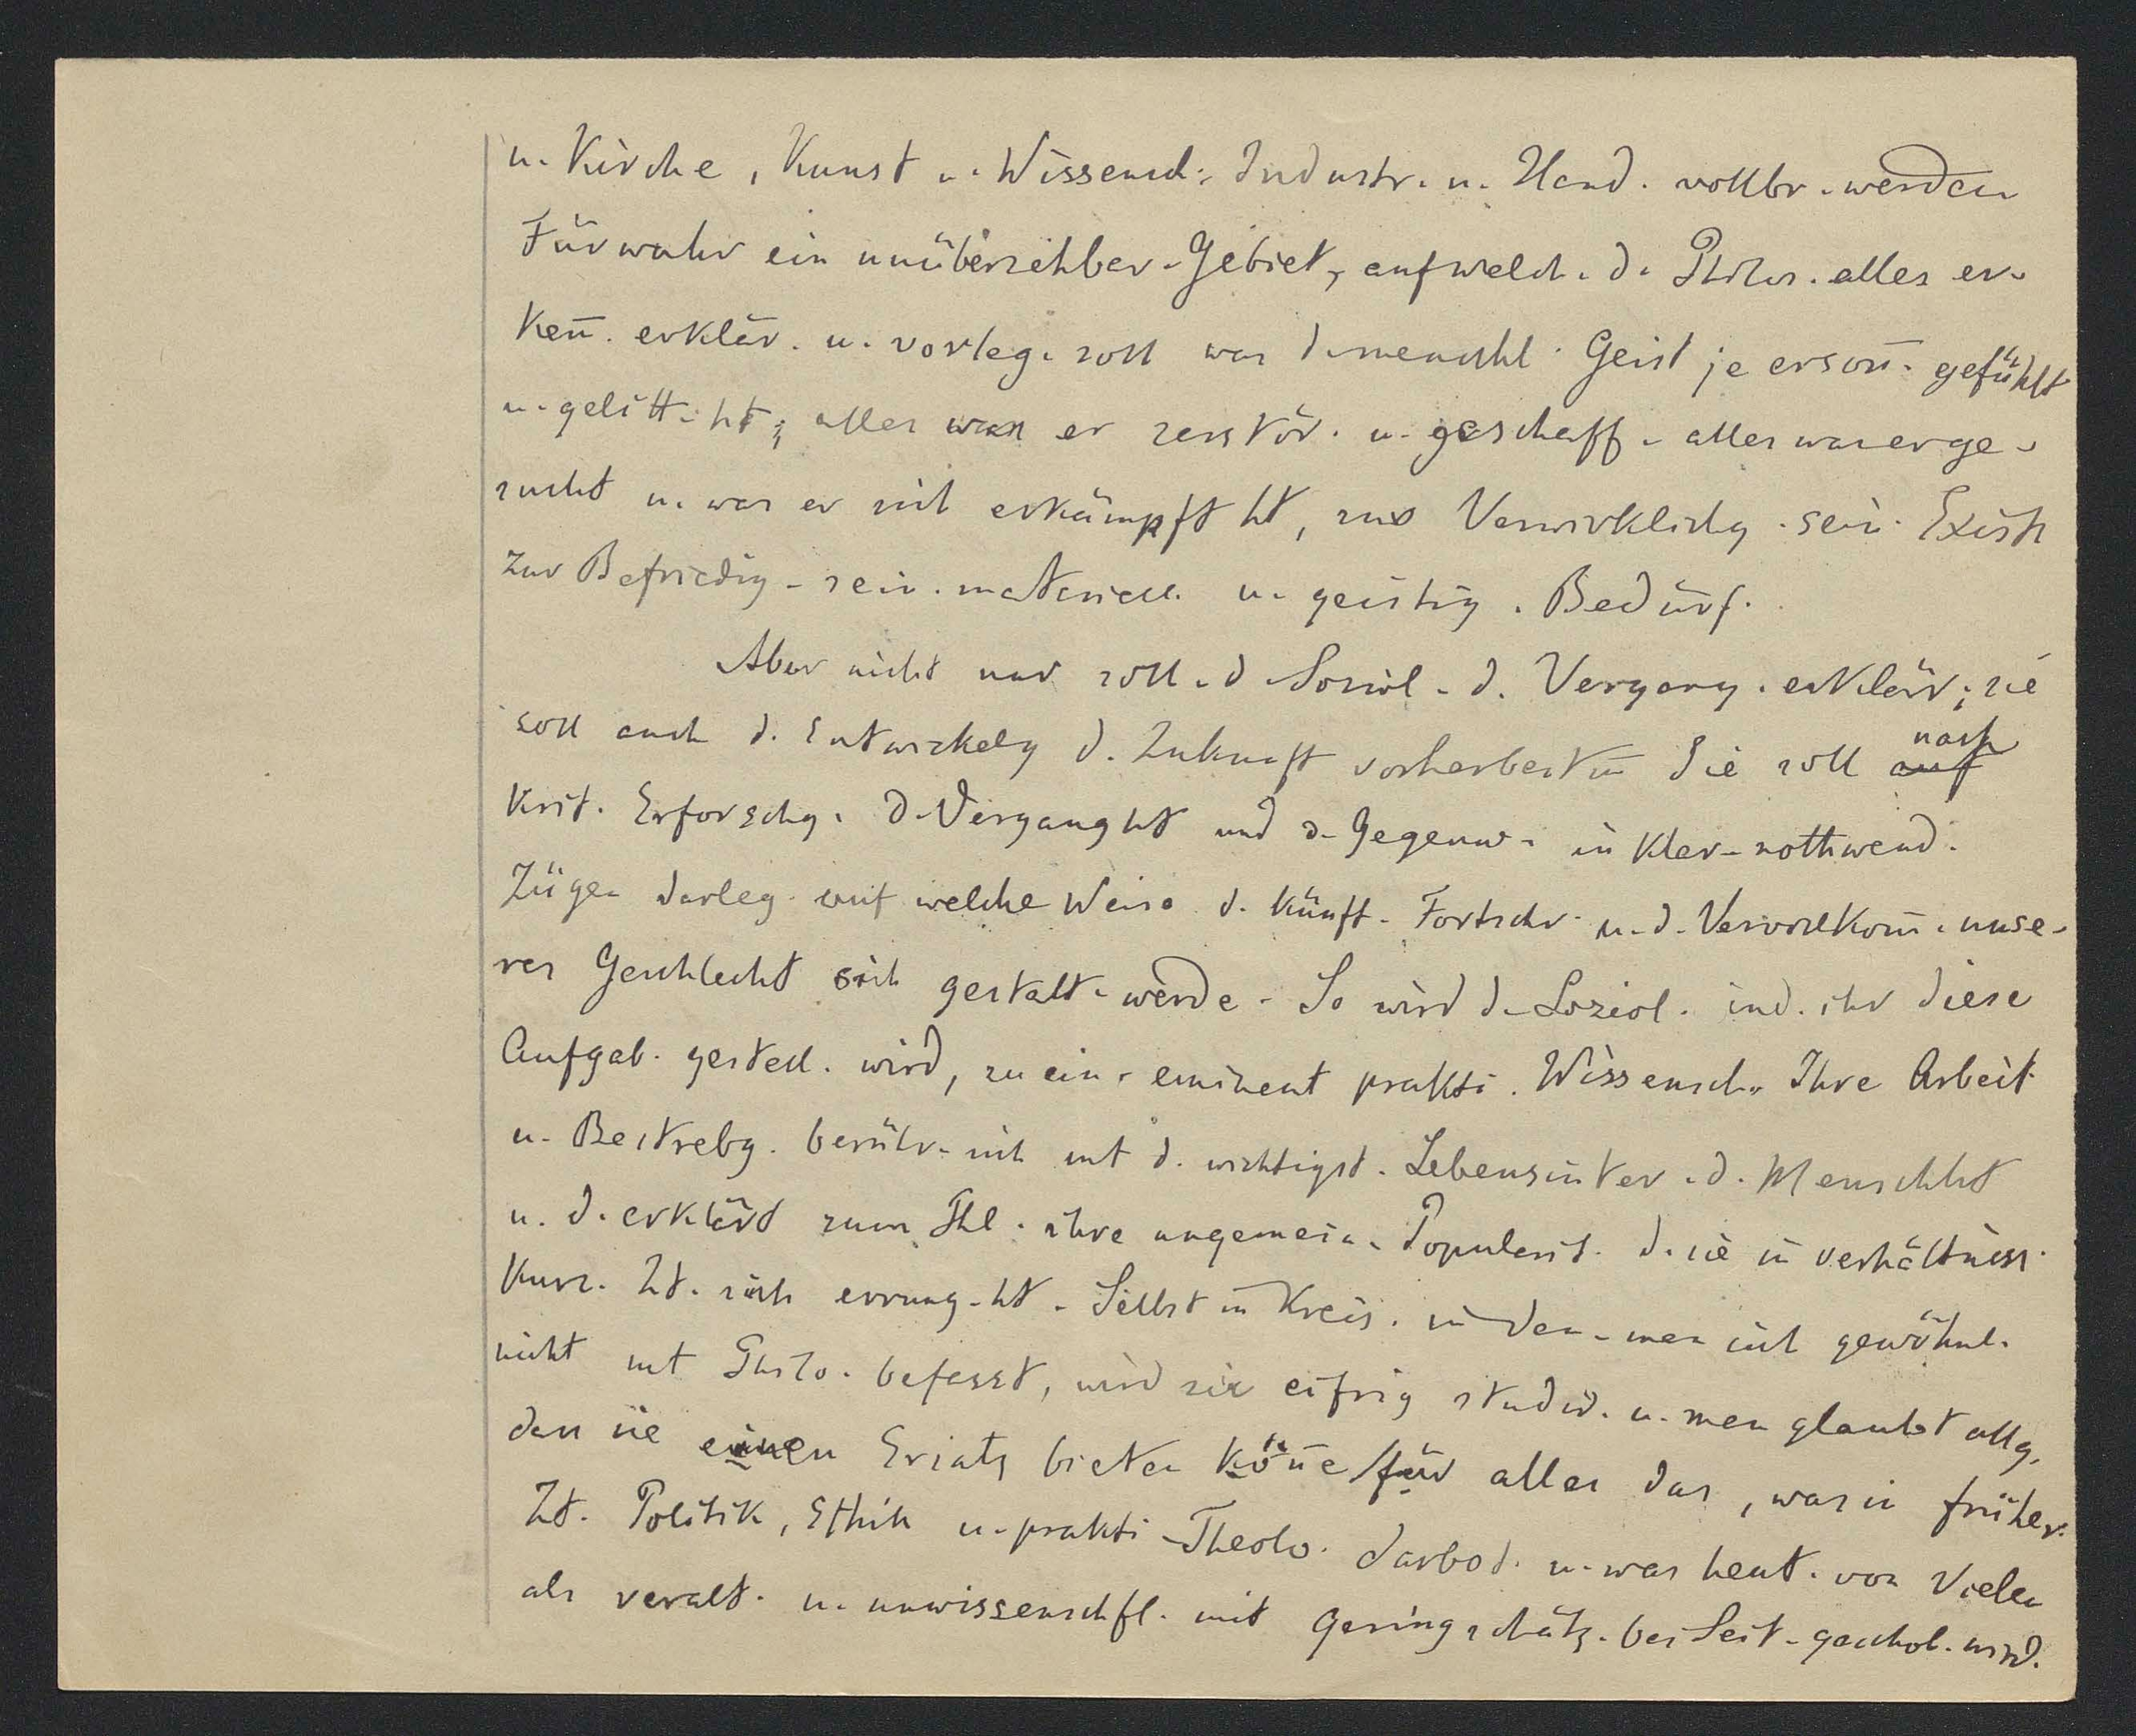 u. Kirche, Kunst u. Wissensch. Industr. u. Hand. vollbr. werden
Fürwahr ein unübersehbar. Gebiet, auf welch. d. Philos. alles er-
ken̄. erklär. u. vorleg. soll was d. menschl. Geist je erson̄. gefühlt
u. gelitt. ht; alles was er zerstör. u. geschaff. alles was er ge-
sucht u. was er sich erkämpft ht, zur Verwirklichg. sein. Exist
zur Befriedig. sein. materiell. u. geistig. Bedürf.
Aber nicht nur soll d. Soziol. d. Vergang. erklär; sie
soll auch d. Entwickelg d. Zukunft vorherbestim̄ Sie soll auf nach
Krit. Erforschg. d. Verganght und d. Gegenw. in klar. nothwend.
Zügen darleg. auf welche Weise d. künft. Fortschr. u. d. Vervollkom̄. unse-
res Geschlecht sich gestalt. werde. So wird d. Soziol. ind. ihr diese
Aufgab. gestell. wird, zu ein. eminent prakti. Wissensch. Ihre Arbeit
u. Bestrebg. berühr. sich mt d. wichtigst. Lebensinter. d. Menschht
u. d. erklärt zum Thl. ihre ungemein. Popularit. d. sie in verhältniss.
kurz. Zt. sich errung. ht. Selbst in Kreis. in den. man sich gewöhnl.
nicht mt Philo. befasst, wird sie eifrig studir. u. man glaubt allg.
dass sie einen Ersatz bieten kön̄e für alles das, was in früher.
Zt. Politik, Ethik u. prakti. Theolo. darbot. u. was heut. von Vielen
als veralt. u. unwissenschftl. mit Geringschätz. bei Seit. geschob. wird.